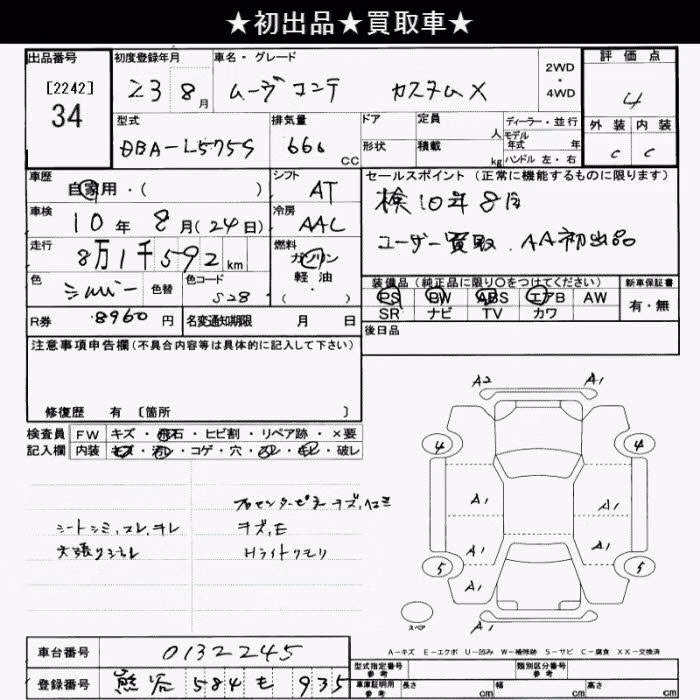 ★初出品★買取車★
出品番号
[2242]
34
初度登録年月
23 8月
車名・グレード
ムーヴ コンテ カスタムX
2WD
・
4WD
評価点
4
外装 内装
C C
型式
DBA-L575S
排気量
660 CC
ドア
形状
定員 人
積載 kg
ディーラー・並行
モデル年式 年
ハンドル 左・右
車歴
自家用・( )
シフト
AT
車検
10年 8月(24日)
冷房
AAC
走行
8万1千592km
燃料
ガソリン
軽油
( )
色
シルバー
色替
色コード
S28
R券 8960円
名変通知期限 月 日
セールスポイント(正常に機能するものに限ります)
検10年8月
ユーザー買取、AA初出品
装備品(純正品に限り〇をつけてください)
PS PW ABS エアB AW
SR ナビ TV カワ
新車保証書
有・無
後日品
注意事項申告欄(不具合内容等は具体的に記入して下さい)
修復歴 有 〔箇所 〕
検査員
記入欄
FW キズ・飛石・ヒビ割・リペア跡・×要
内装 キズ・汚レ・コゲ・穴・スレ・キレ・破レ
シートシミ,スレ,チレ
天張りシミ
キズ,E
Hライトクモリ
A2 A1
4 4
A1 A1
A1 A1
5 5
A1
A1
スペア
A-キズ E-エクボ U-凹み W-補修跡 S-サビ C-腐食 XX-交換済
車台番号 0132245
登録番号 熊谷 584 も 935
型式指定番号
参考
類別区分番号
参考
車庫証明用
参考
長さ cm 幅 cm 高さ cm